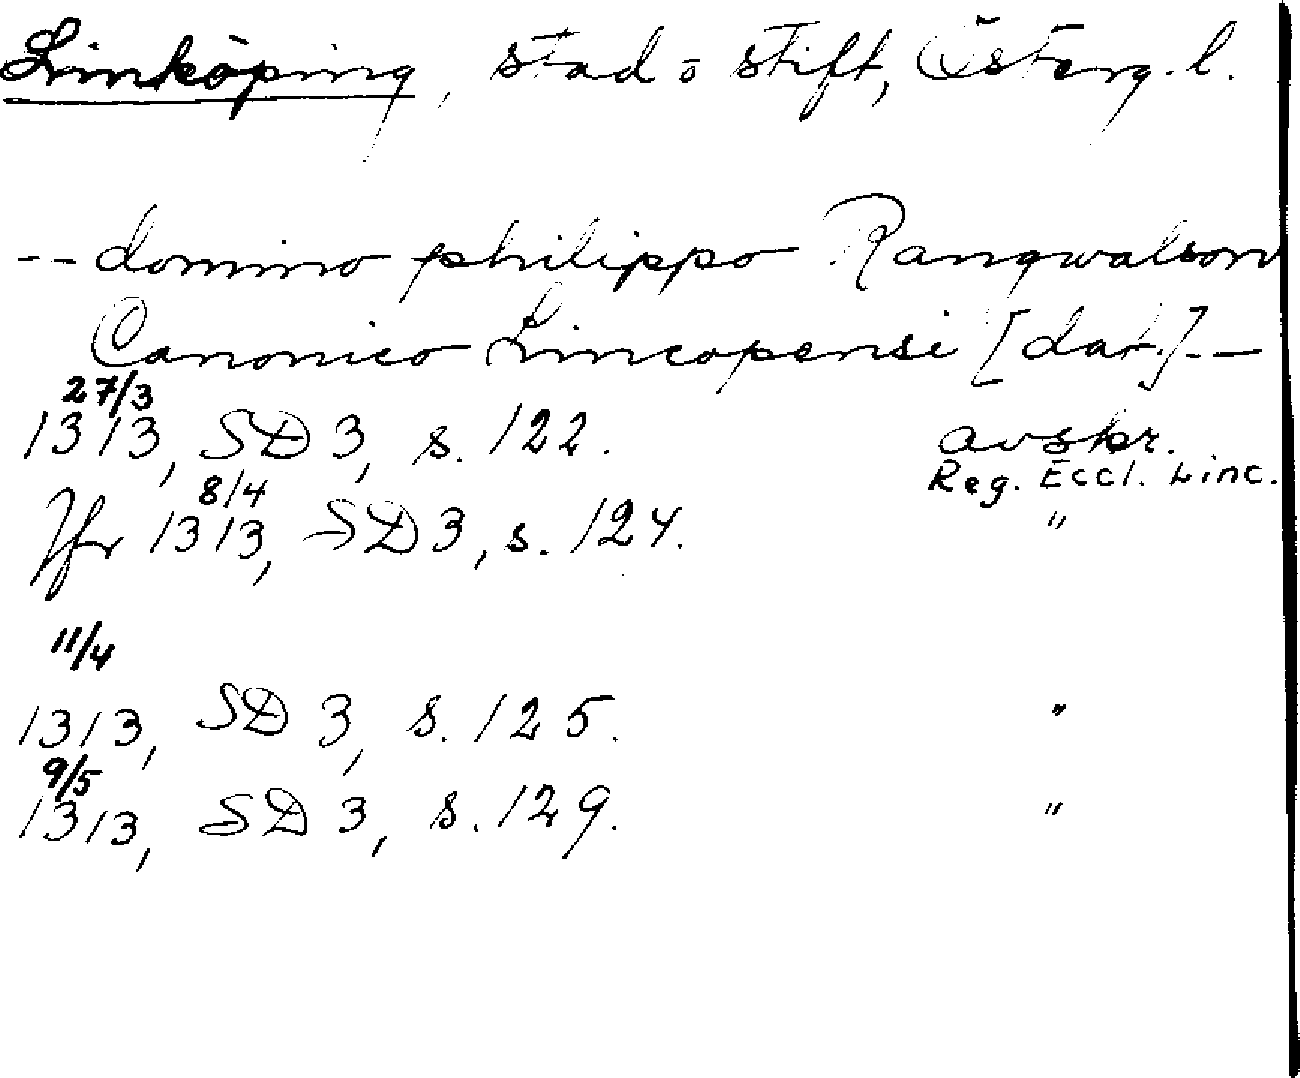 Linköping, stad o stift, Österg. l.
-- domino philippo Rangwalson
Canonico Lincopensi [dat.] --
27/3
1313, SD 3, s. 122. avskr.
Reg. Eccl. Linc.
8/4
Jfr 1313, SD 3, s. 124. "
11/4
1313, SD 3, s. 125. "
9/5
1313, SD 3, s. 129. "